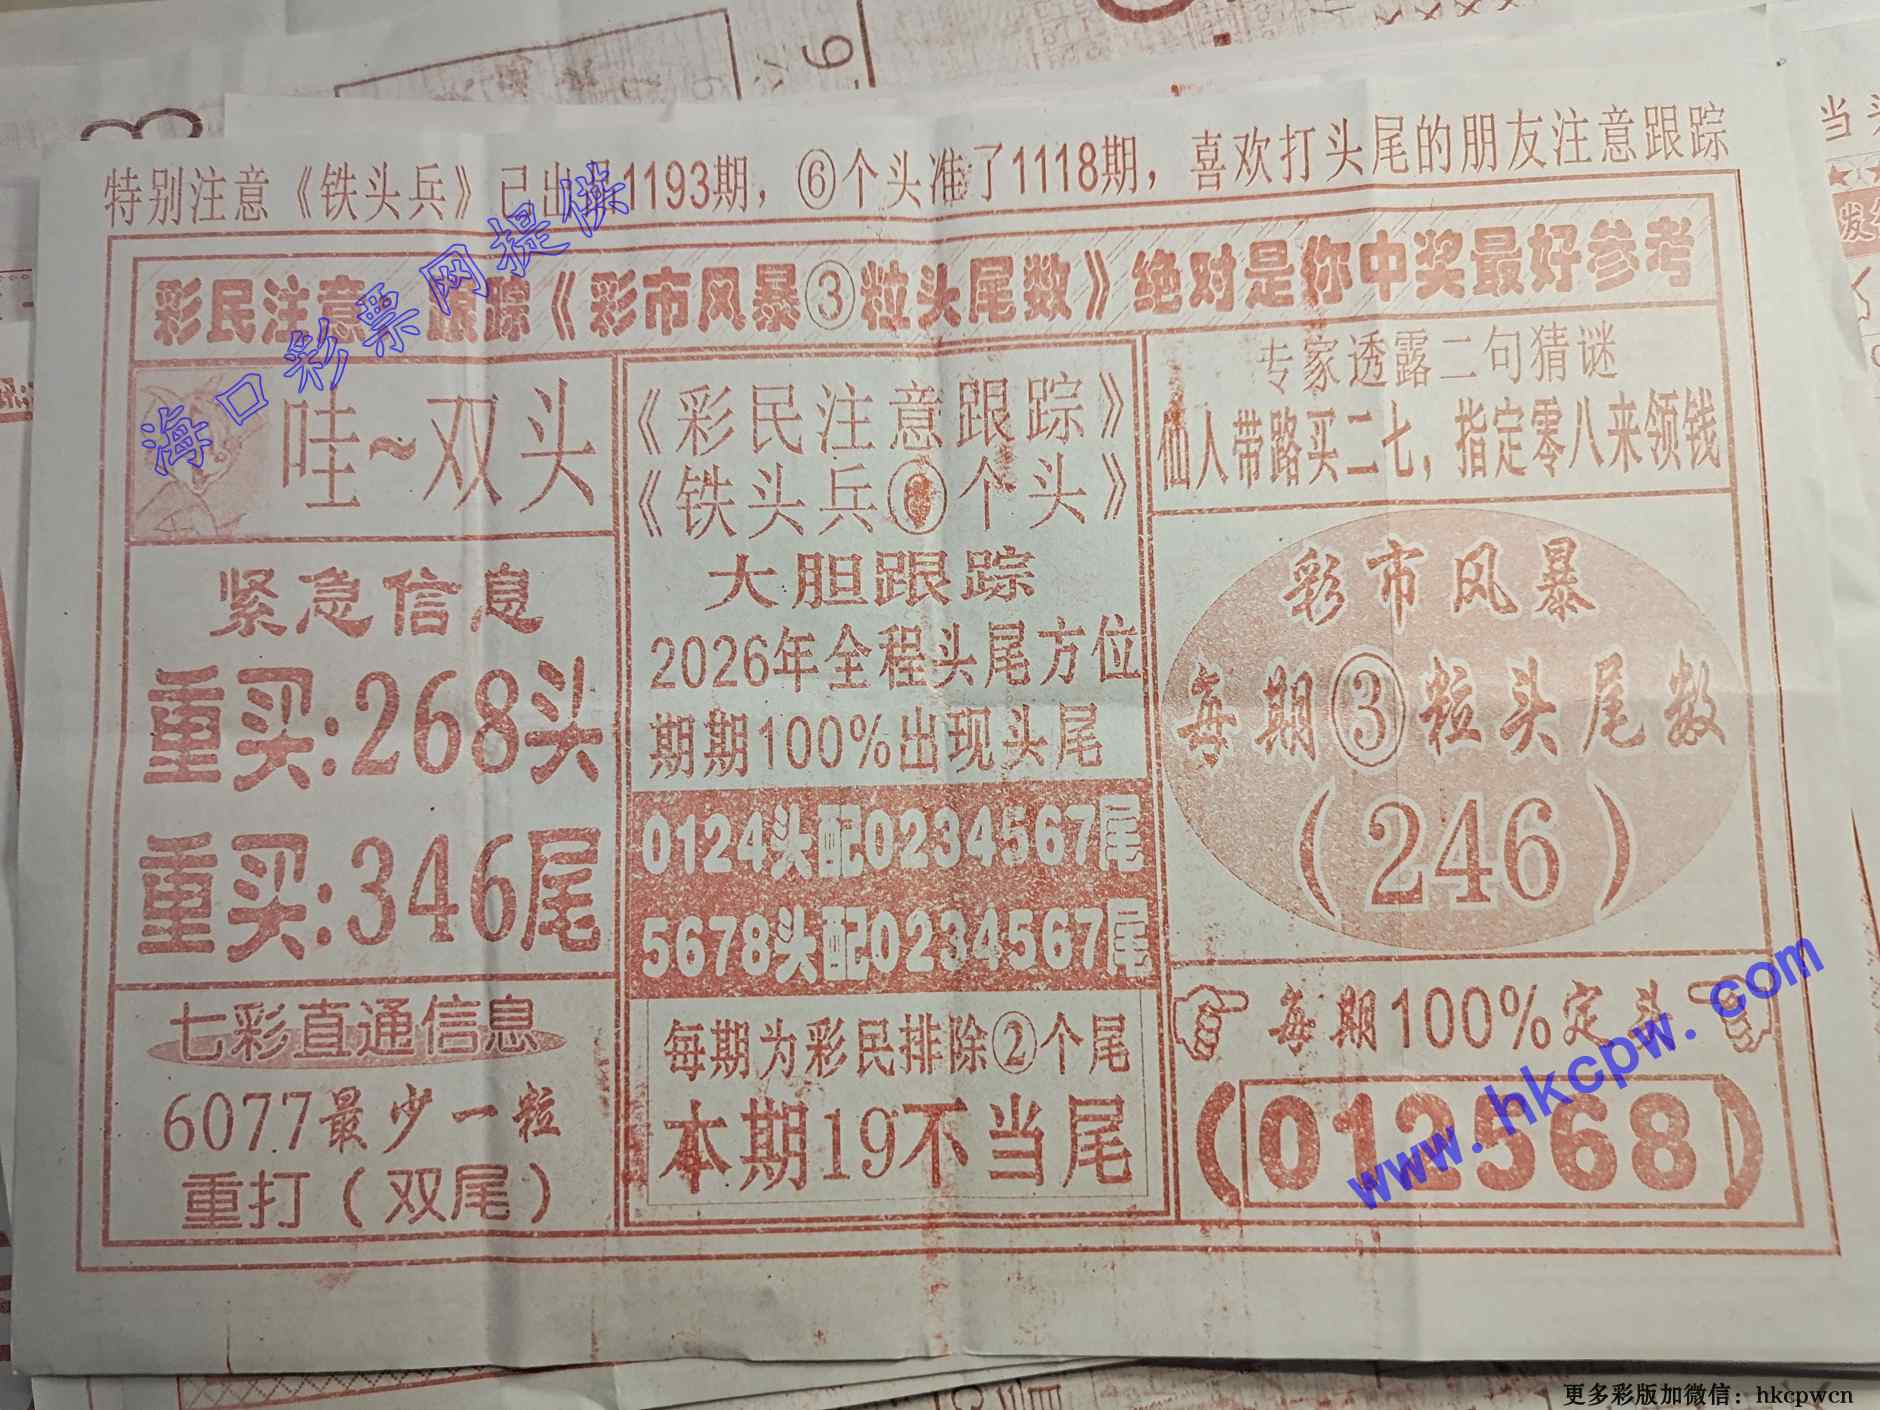 特别注意《铁头兵》已出1193期，⑥个头准了1118期，喜欢打头尾的朋友注意跟踪
彩民注意 跟踪《彩市风暴③粒头尾数》绝对是你中奖最好参考
哇~双头
紧急信息
重买:268头
重买:346尾
七彩直通信息
6077最少一粒
重打（双尾）
《彩民注意跟踪》
《铁头兵⑥个头》
大胆跟踪
2026年全程头尾方位
期期100%出现头尾
0124头配0234567尾
5678头配0234567尾
每期为彩民排除②个尾
本期19不当尾
专家透露二句猜谜
仙人带路买二七，指定零八来领钱
彩市风暴
每期③粒头尾数
（246）
每期100%定头
（012568）
海口彩票网提供
www.hkcpw.com
更多彩版加微信：hkcpwcn
当头
发